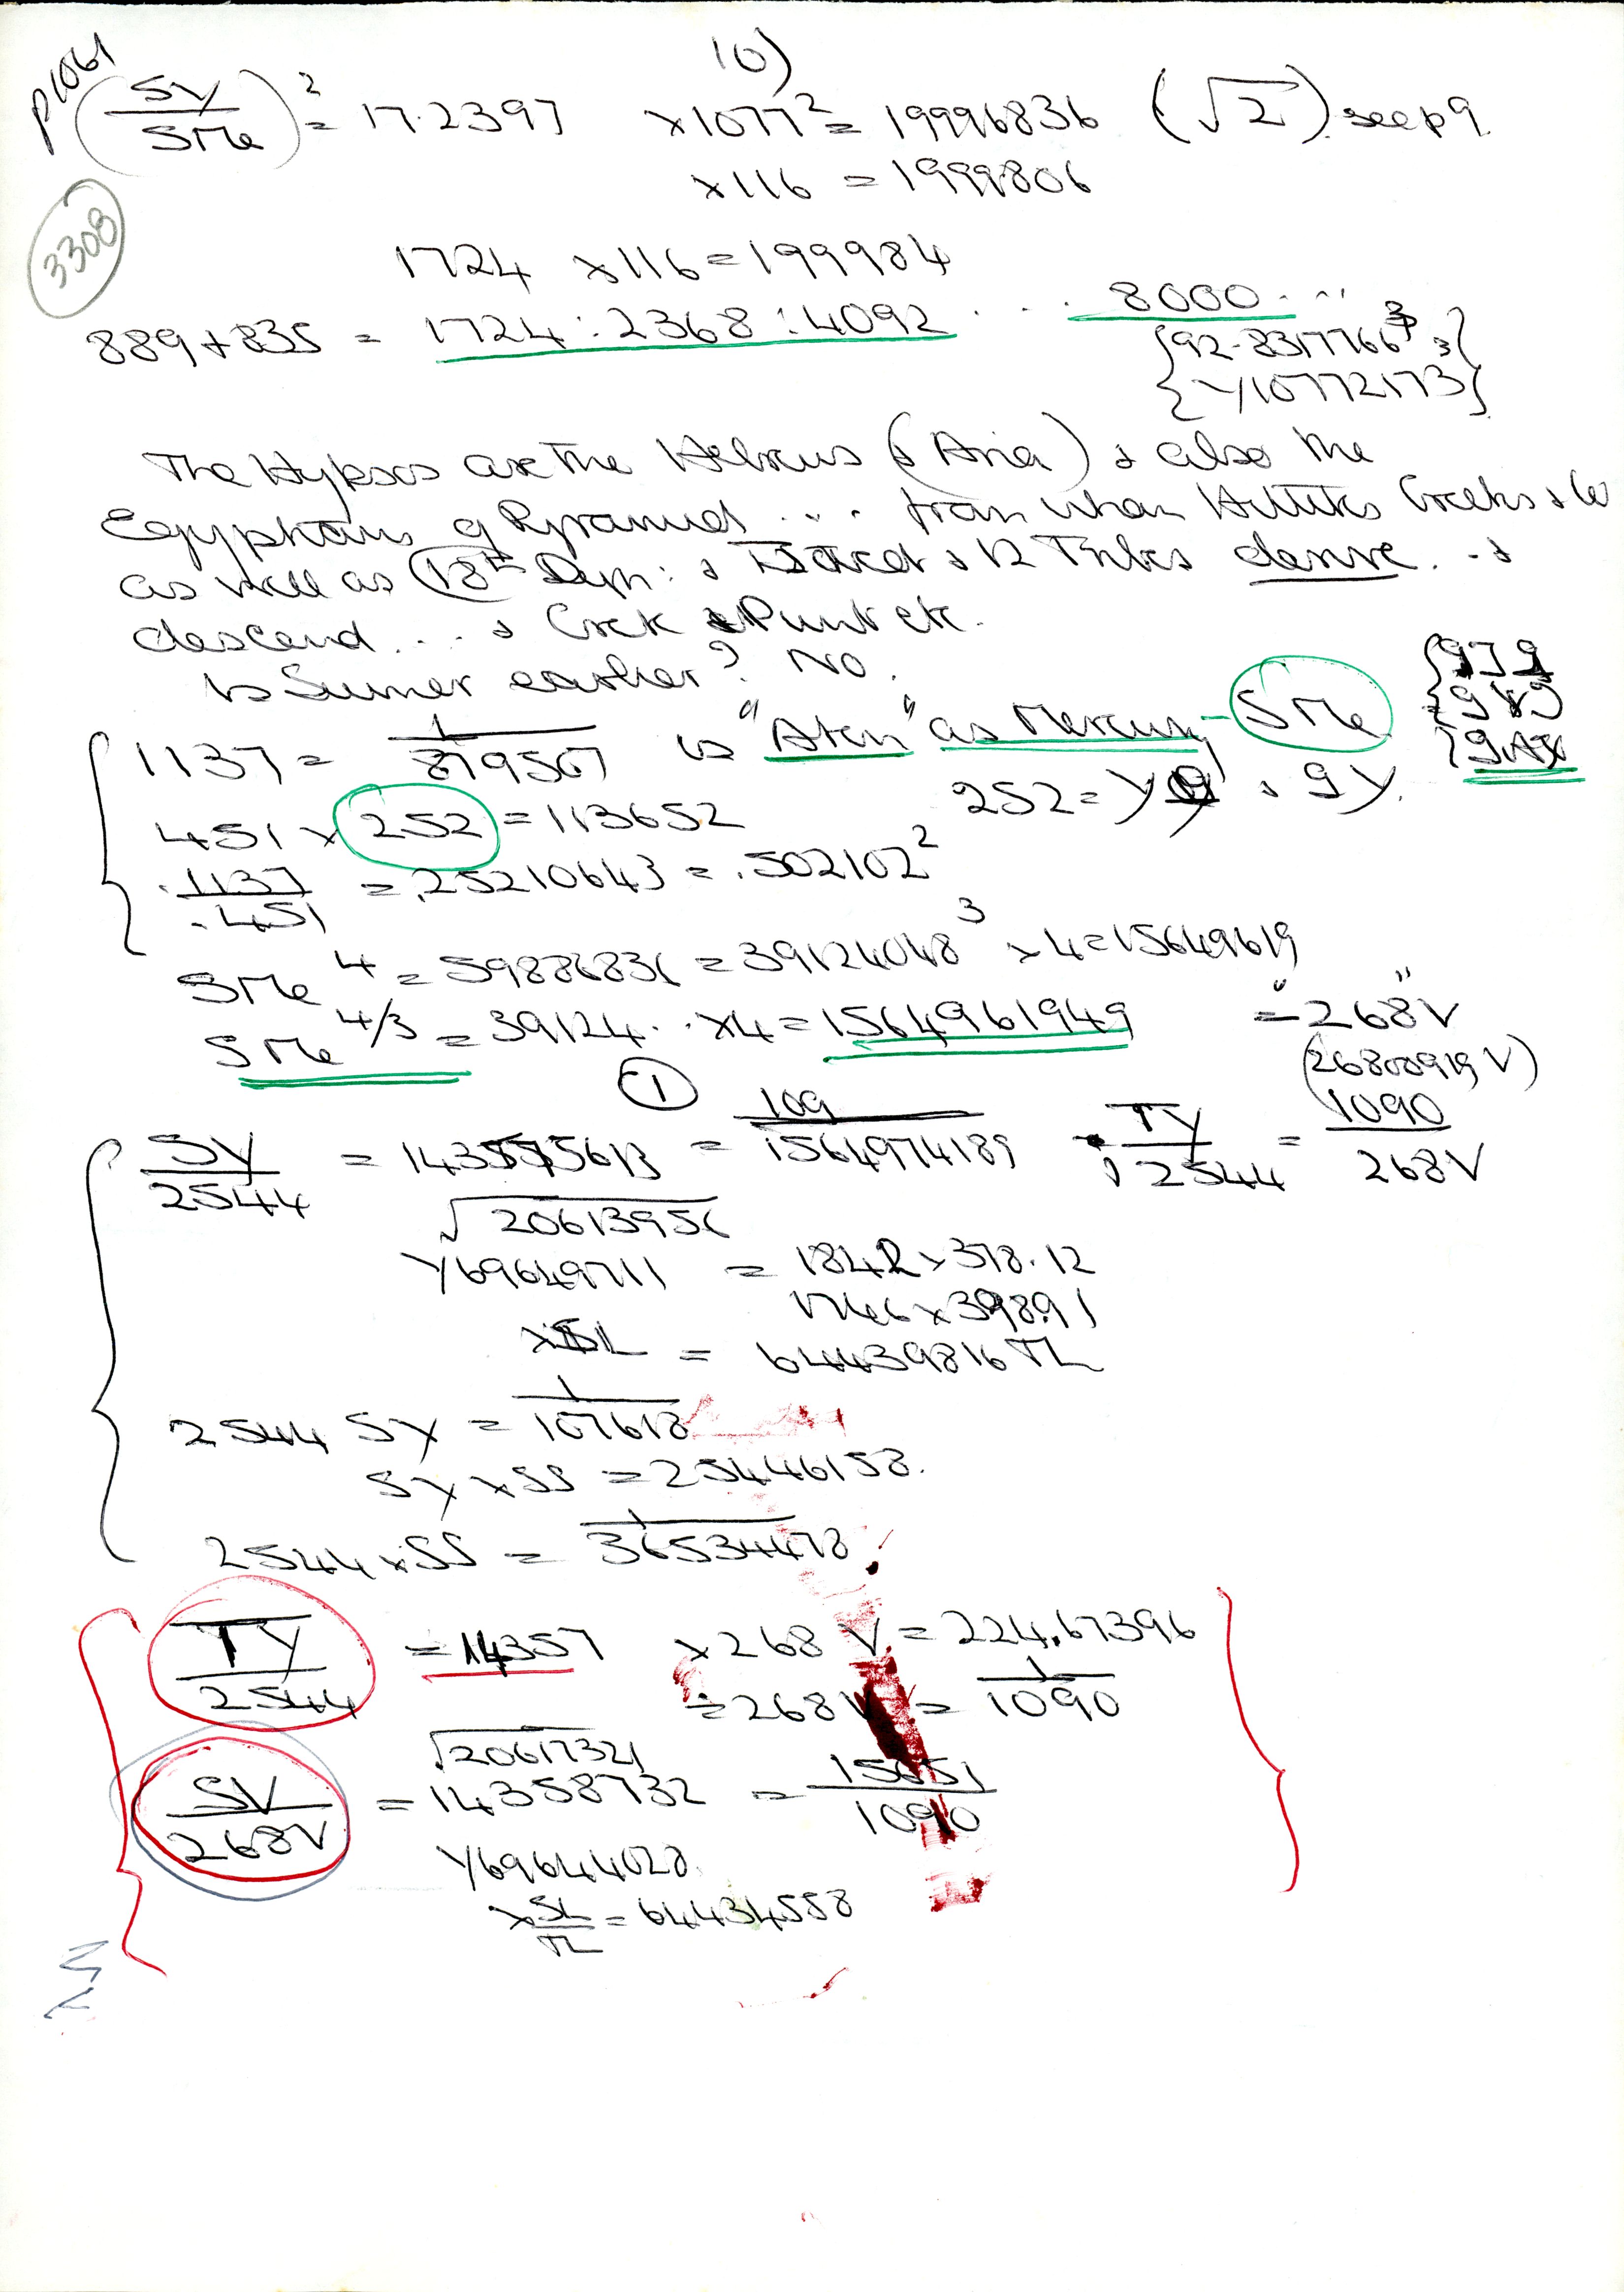 10)
p1061
(SV/SMe)² = 17.2397 ×1077² = 19996836 (√2) see p9
×116 = 1999806
3308
1724 ×116 = 199984
889 + 835 = 1724 : 2368 : 4092 ... 8000 ...
{92.8317766³}
{Y10772173³}
The Hyksos are the Hebrews (& Aria) & also the
Egyptians of Pyramids ... from whom Hittites Greeks &
as well as 18th Dyn: & Israel & 12 Tribes derive. .. &
descend ... & Greek & Punt etc.
Is Sumer earlier? No.
1137 = 1/879567 is "Aten" as Mercury - SMe
451 × 252 = 113652 252 = Y9 & 9Y.
.1137/.451 = .25210643 = .502102²
SMe⁴ = 59886836 = 39124048³ ×4 = 15649619
SMe^4/3 = 39124.. ×4 = 1564961949 = "268" V
(26800919 V)
①
SY/2544 = 1435575613 = 109/1564974189 TY/2544 = 1090/268V
√20613956
Y69649711 = 1842 × 378.12
1746 × 398.91
×SL = 64439816 TL
2544 SY = 1/107618
SY × SS = 25446158.
2544 × SS = 1/36534478
TY/2544 = 14357 ×268 V = 224.67396
÷268V = 1/1090
√20617321
SV/268V = 14358732 = 15651/1090
Y69644028
×SL/TL = 64434558